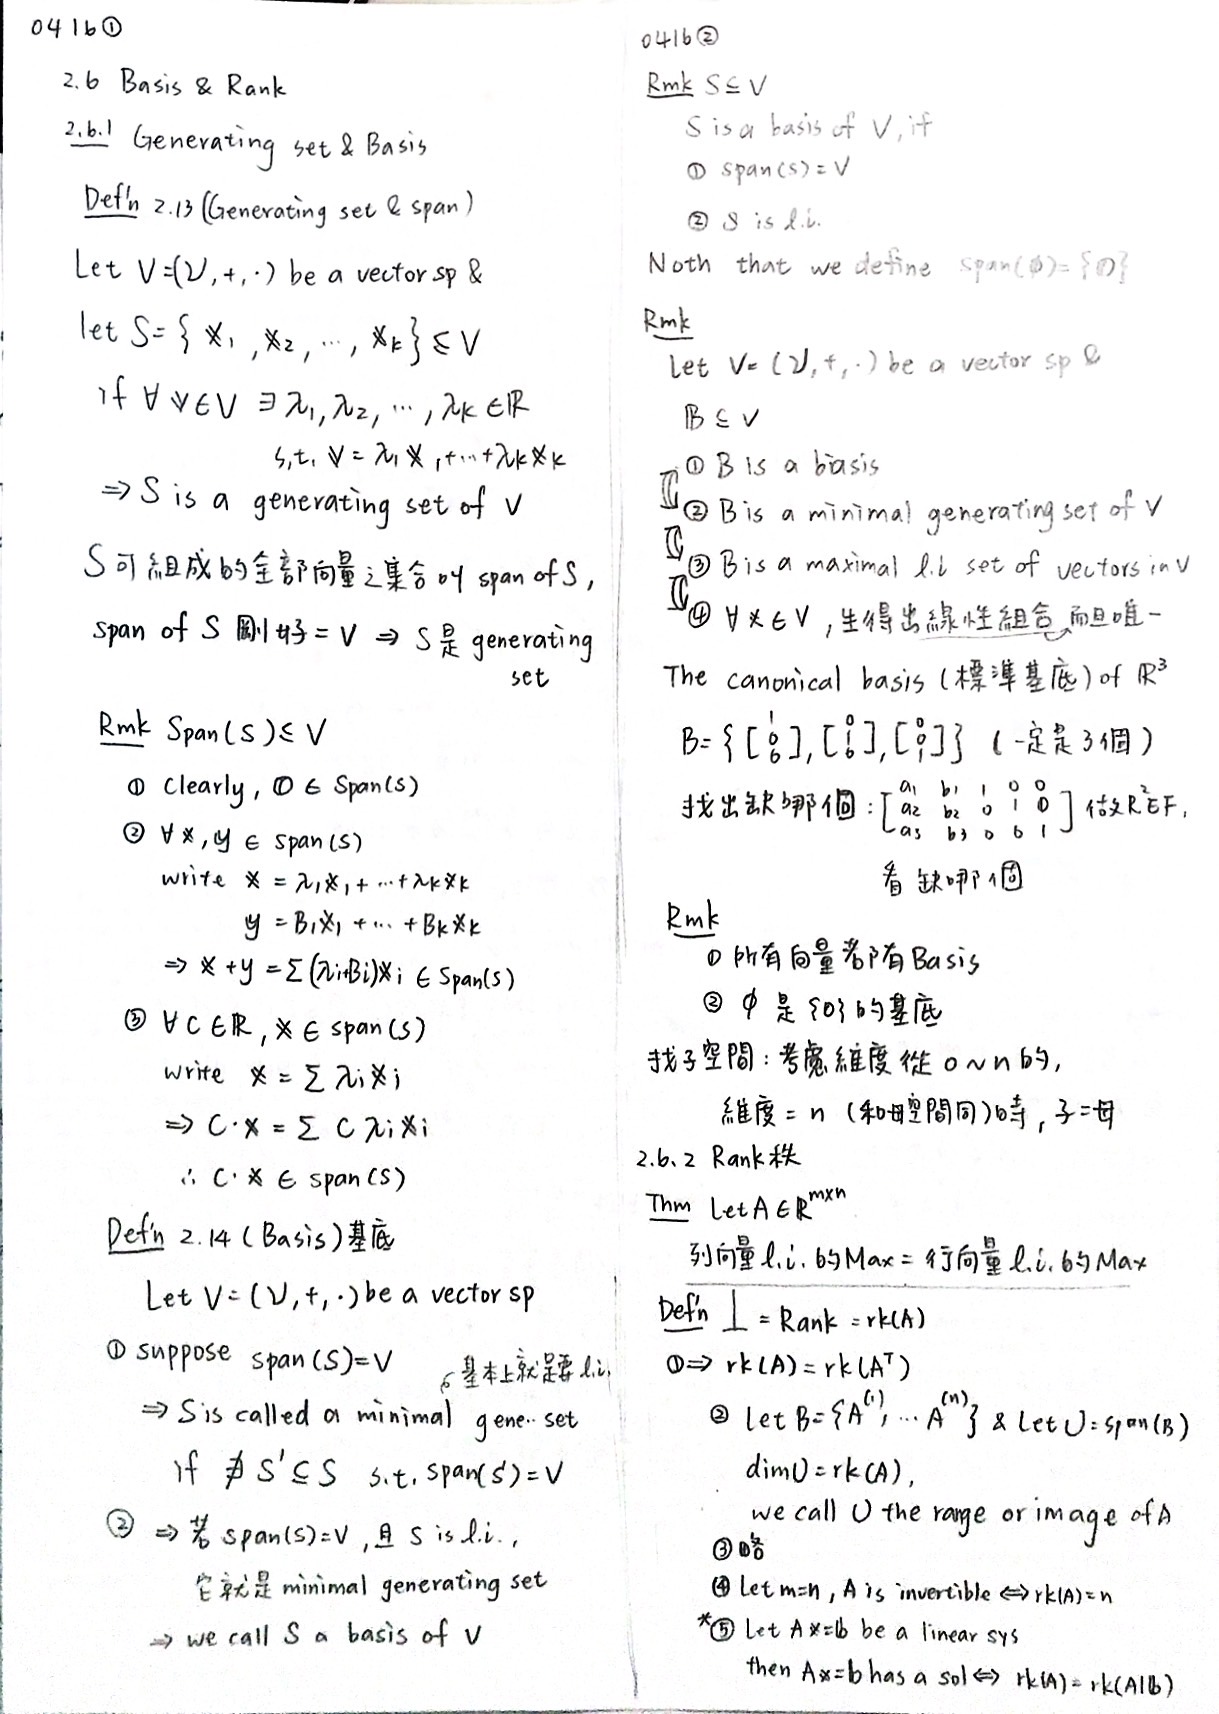 0416①
2.6 Basis & Rank
2.6.1 Generating set & Basis
Def'n 2.13 (Generating set & span)
Let V=(𝒱,+,·) be a vector sp &
let S={𝕩₁,𝕩₂,…,𝕩ₖ}⊆V
if ∀𝕧∈V ∃λ₁,λ₂,…,λₖ∈ℝ
s.t. 𝕧=λ₁𝕩₁+…+λₖ𝕩ₖ
⇒ S is a generating set of V
S可組成的全部向量之集合叫span of S,
span of S 剛好=V ⇒ S是generating
set
Rmk Span(S)⊆V
① clearly, 𝟘∈Span(S)
② ∀𝕩,𝕪∈span(S)
write 𝕩=λ₁𝕩₁+…+λₖ𝕩ₖ
𝕪=B₁𝕩₁+…+Bₖ𝕩ₖ
⇒ 𝕩+𝕪=Σ(λi+Bi)𝕩i∈Span(S)
③ ∀C∈ℝ, 𝕩∈span(S)
write 𝕩=Σλi𝕩i
⇒ C·𝕩=ΣCλi𝕩i
∴ C·𝕩∈span(S)
Def'n 2.14 (Basis)基底
Let V=(𝒱,+,·) be a vector sp
① suppose span(S)=V
基本上就是要l.i.
⇒ S is called a minimal gene.. set
if ∄S'⊆S s.t. span(S')=V
② ⇒ 若span(S)=V,且S is l.i.,
它就是minimal generating set
⇒ we call S a basis of V
0416②
Rmk S⊆V
S is a basis of V, if
① span(S)=V
② S is l.i.
Noth that we define span(∅)={𝟘}
Rmk
Let V=(𝒱,+,·) be a vector sp &
𝔹⊆V
① B is a biasis
② B is a minimal generating set of V
③ B is a maximal l.i set of vectors in V
④ ∀𝕩∈V,生得出線性組合而且唯一
The canonical basis (標準基底) of ℝ³
B={[1 0 0],[0 1 0],[0 0 1]} (一定是3個)
找出缺哪個:[a₁ b₁ 1 0 0
a₂ b₂ 0 1 0
a₃ b₃ 0 0 1] 做R²EF,
看缺哪個
Rmk
① 所有向量都有Basis
② ∅是{0}的基底
找子空間:考慮維度從0~n的,
維度=n (和母空間同)時,子=母
2.6.2 Rank秩
Thm Let A∈ℝᵐˣⁿ
列向量l.i.的Max=行向量l.i.的Max
Def'n ⊥=Rank=rk(A)
①⇒ rk(A)=rk(Aᵀ)
② Let B={A⁽¹⁾,…A⁽ⁿ⁾} & Let U=span(B)
dimU=rk(A),
we call U the range or image of A
③ 略
④ Let m=n, A is invertible ⇔ rk(A)=n
*⑤ Let A𝕩=𝕓 be a linear sys
then A𝕩=𝕓 has a sol ⇔ rk(A)=rk(A|𝕓)